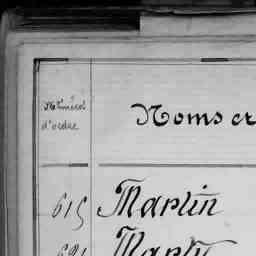 Numéros
d'ordre
Noms et
615 Martin
621 Marty